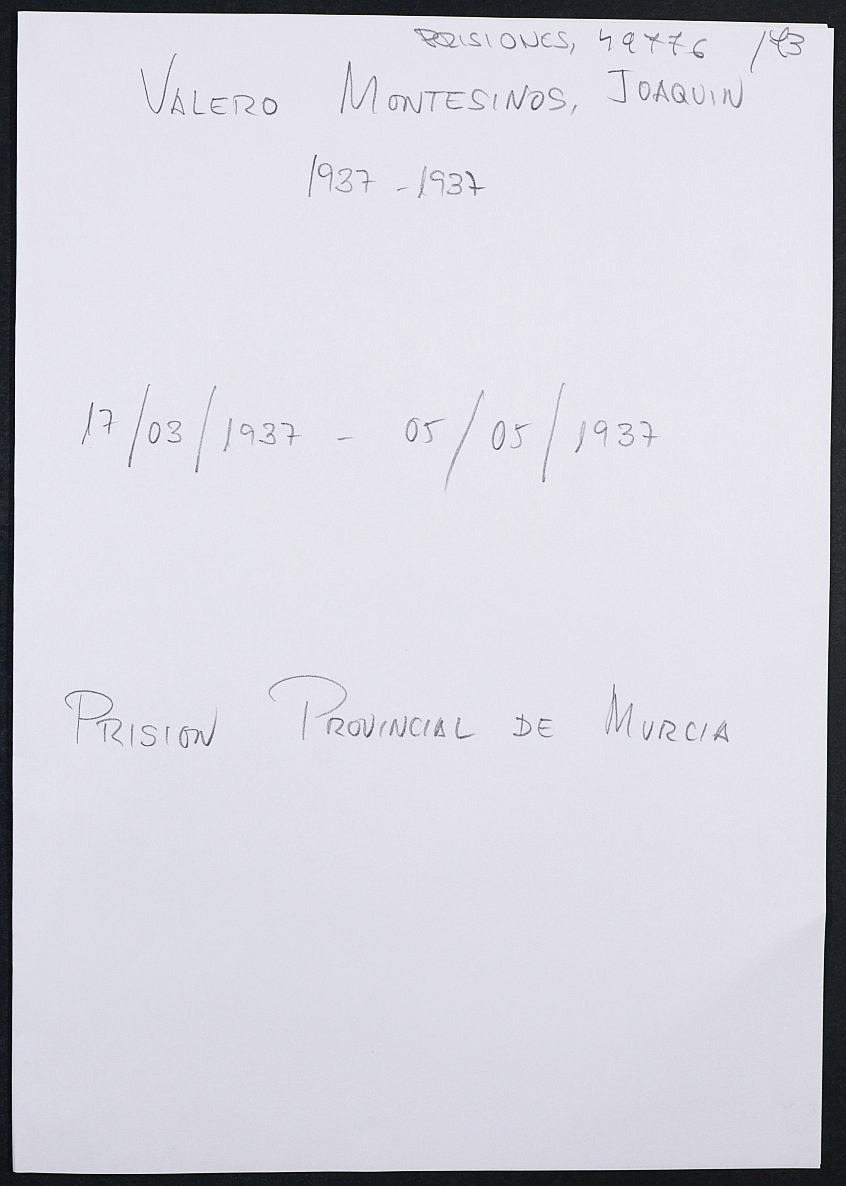 PRISIONES, 49776 /43
VALERO MONTESINOS, JOAQUIN
1937 - 1937
17/03/1937 - 05/05/1937
PRISION PROVINCIAL DE MURCIA